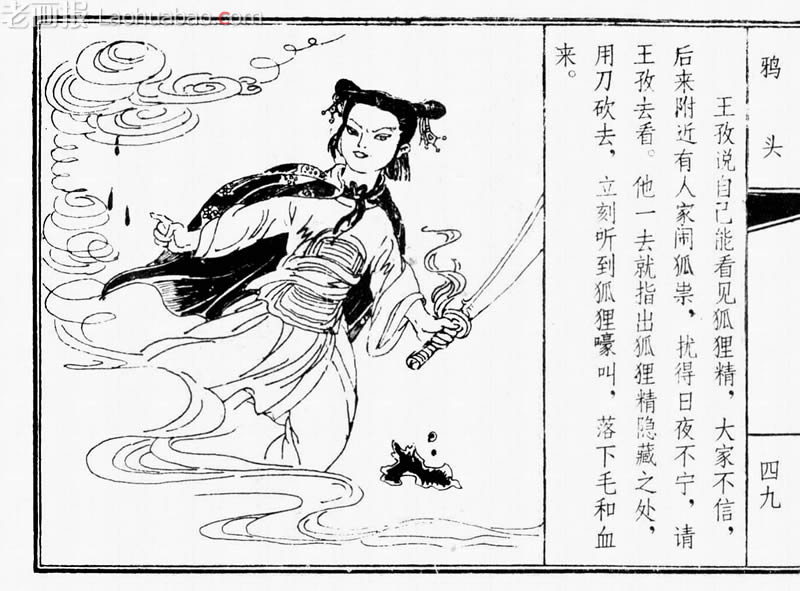 老画报 Laohuabao.com
王孜说自己能看见狐狸精，大家不信，
后来附近有人家闹狐祟，扰得日夜不宁，请
王孜去看。他一去就指出狐狸精隐藏之处，
用刀砍去，立刻听到狐狸嚎叫，落下毛和血
来。
鸦头
四九